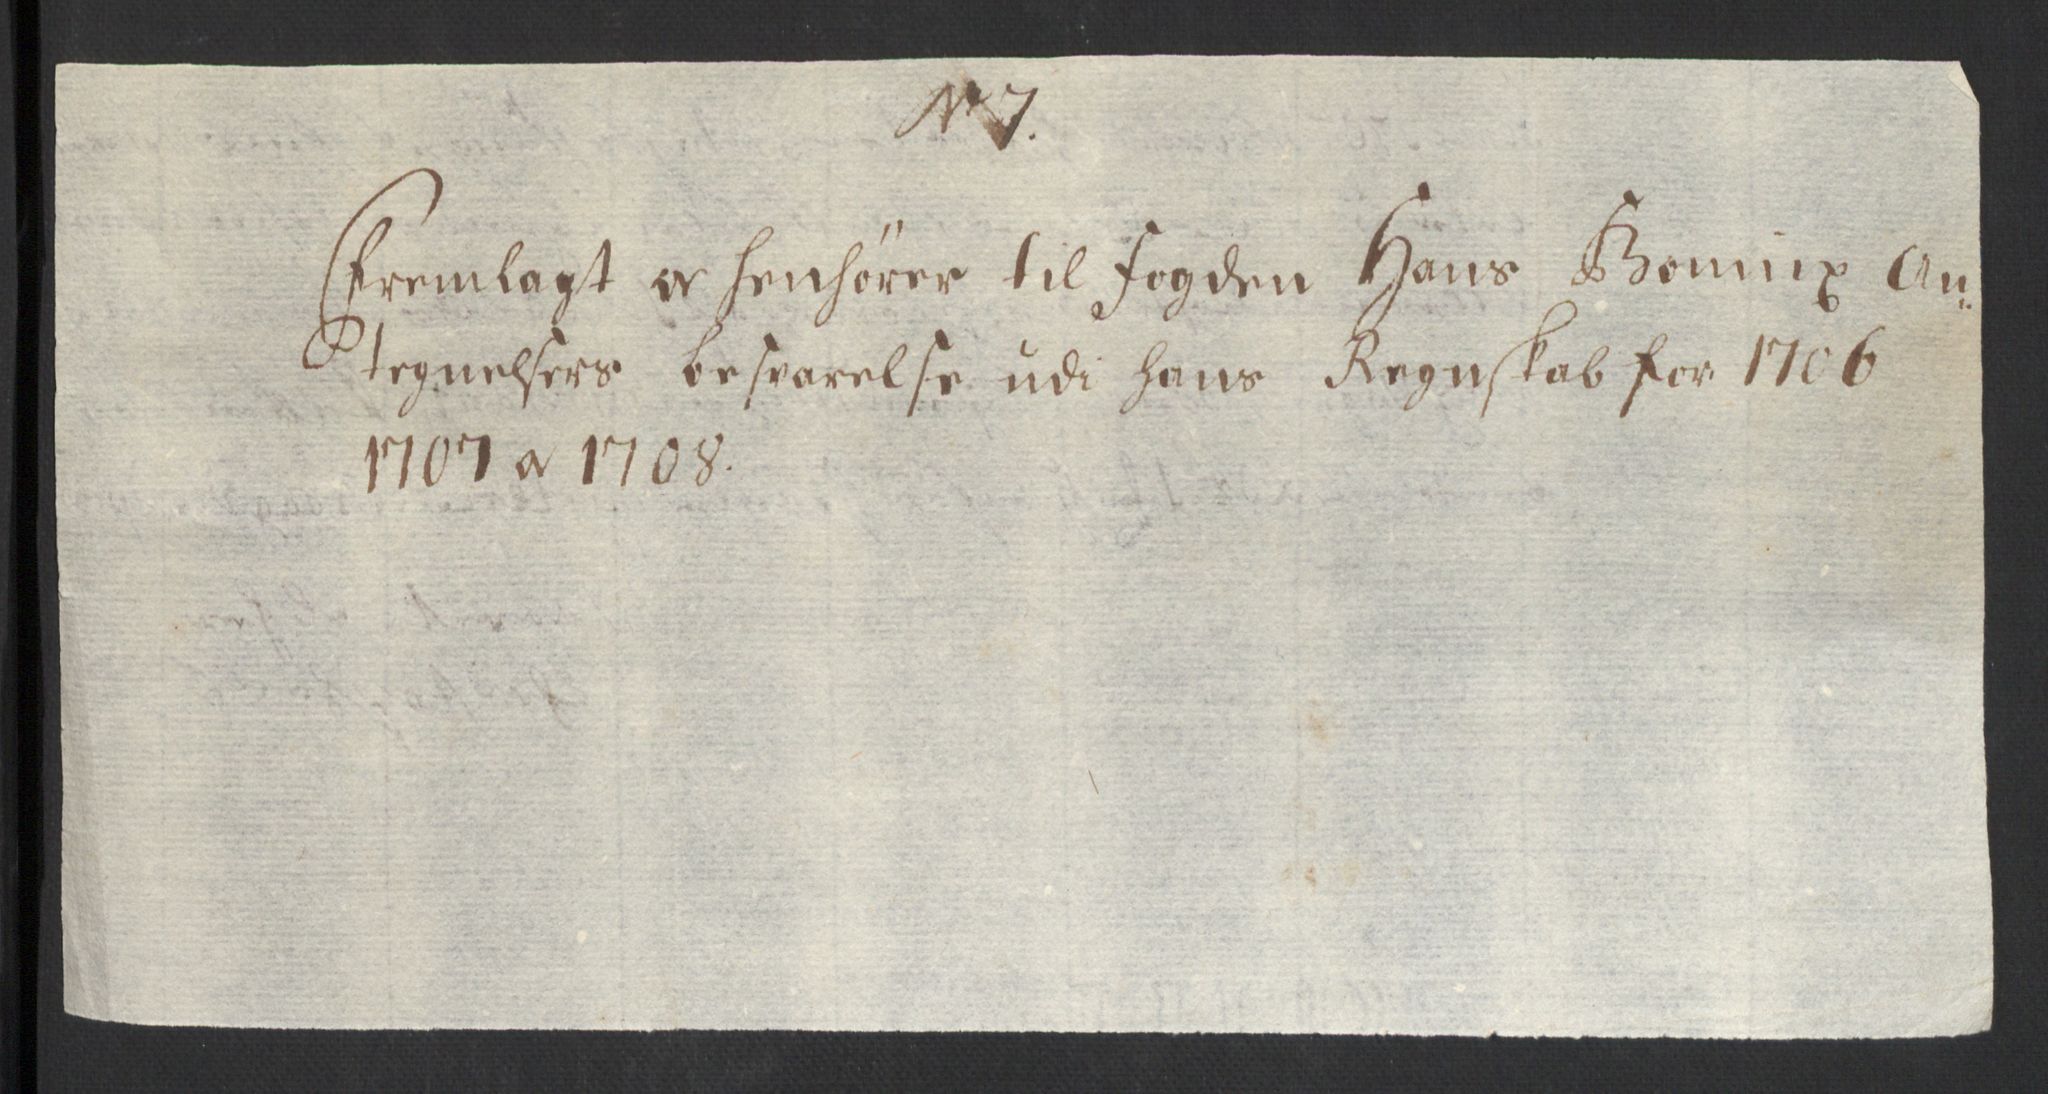 No 7.
Fremlagt og henhörer til fogden Hans Bonnix An:
tegnelsers besvarelse udi hans Regnskab for 1706
1707 og 1708.